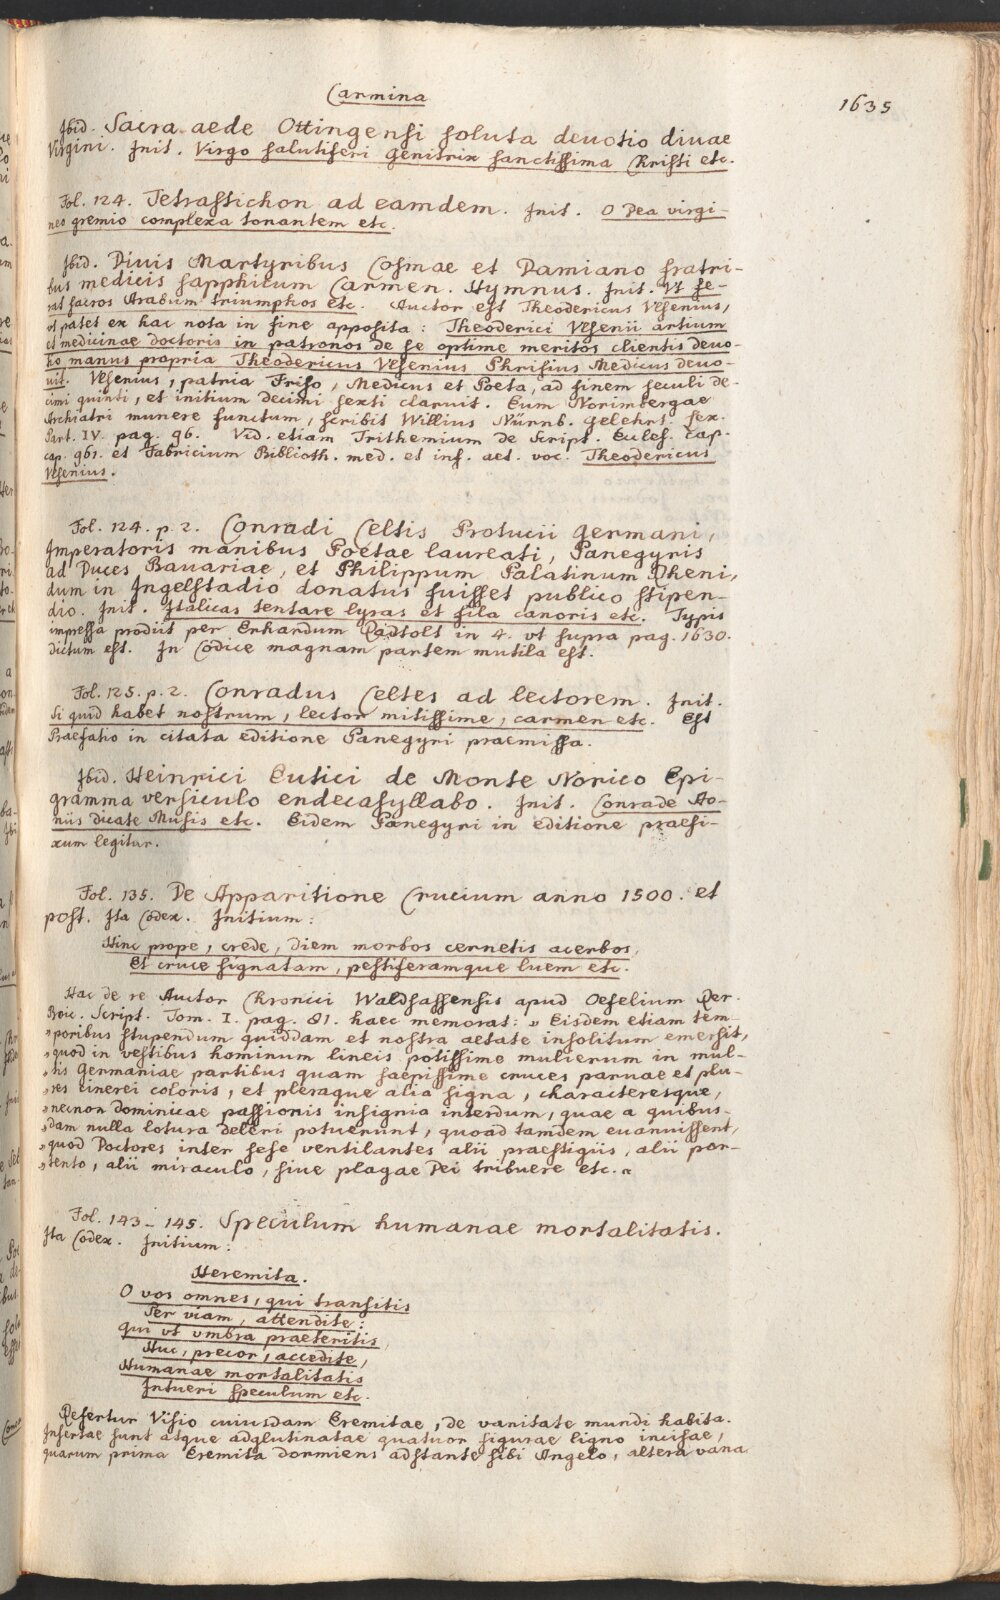 Carmina
1635
Ibid. Sacra aede Ottingensi soluta deuotio diuae
Virgini. Init. Virgo salutiferi genitrix sanctissima Christi etc.
Fol. 124. Tetrastichon ad eamdem. Init. O Dea virgi-
neo gremio complexa tonantem etc.
Ibid. Diuis Martyribus Cosmae et Damiano fratri-
bus medicis sapphicum Carmen. Hymnus. Init. Vt fe-
rat sacros Arabum triumphos etc. Auctor est Theodericus Vlsenius,
vt patet ex hac nota in fine apposita: Theoderici Vlsenii artium
et medicinae doctoris in patronos de se optime meritos clientis deuo-
to manus propria Theodericus Vlsenius Phrisius Medicus deuo-
uit. Vlsenius, patria Friso, Medicus et Poeta, ad finem seculi de-
cimi quinti, et initium decimi sexti claruit. Eum Norimbergae
Archiatri munere functum, scribit Willius Nürnb. Gelehrt. Lex.
Part. IV. pag. 96. Vid. etiam Trithemium de Script. Eccles. cap.
cap. 961. et Fabricium Biblioth. med. et inf. aet. voc. Theodericus
Vlsenius.
Fol. 124. p. 2. Conradi Celtis Protucii Germani,
Imperatoris manibus Poetae laureati, Panegyris
ad Duces Bauariae, et Philippum Palatinum Rheni,
dum in Ingelstadio donatus fuisset publico stipen-
dio. Init. Italicas tentare lyras et fila canoris etc. Typis
impressa prodiit per Erhardum Radtolt in 4. vt supra pag. 1630.
dictum est. In Codice magnam partem mutila est.
Fol. 125. p. 2. Conradus Celtes ad lectorem. Init.
Si quid habet nostrum, lector mitissime, carmen etc. Est
Praefatio in citata editione Panegyri praemissa.
Ibid. Heinrici Eutici de Monte Norico Epi-
gramma versiculo endecasyllabo. Init. Conrade Ao-
niis dicate Musis etc. Eidem Panegyri in editione praefi-
xum legitur.
Fol. 135. De Apparitione Crucium anno 1500. et
post. Ita Codex. Initium:
Hinc prope, crede, diem morbos cernetis acerbos,
Et cruce signatam, pestiferamque luem etc.
Hac de re Auctor Chronici Waldsassensis apud Oefelium Rer.
Boic. Script. Tom. I. pag. 81. haec memorat: „Eisdem etiam tem-
„poribus stupendum quiddam et nostra aetate insolitum emersit,
„quod in vestibus hominum lineis potissime mulierum in mul-
„tis Germaniae partibus quam saepissime cruces paruae et plu-
„res cinerei coloris, et pleraque alia signa, characteresque,
„necnon dominicae passionis insignia interdum, quae a quibus-
„dam nulla lotura deleri potuerunt, quoad tamdem euanuissent,
„quod Doctores inter sese ventilantes alii praestigiis, alii por-
„tento, alii miraculo, siue plagae Dei tribuere etc.“
Fol. 143–145. Speculum humanae mortalitatis.
Ita Codex. Initium:
Heremita.
O vos omnes, qui transitis
Per viam, attendite:
Qui vt vmbra praeteritis,
Huc, precor, accedite,
Humanae mortalitatis
Intueri speculum etc.
Refertur Visio cuiusdam Eremitae, de vanitate mundi habita.
Insertae sunt atque adglutinatae quatuor figurae ligno incisae,
quarum prima Eremita dormiens adstante sibi Angelo, altera vana